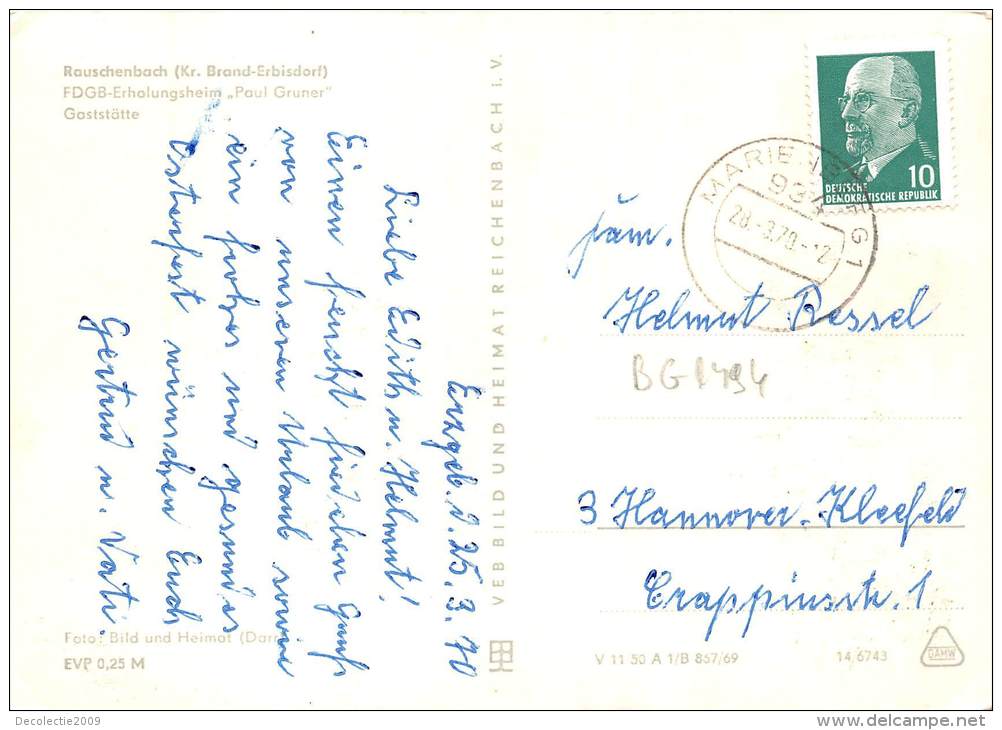 Rauschenbach (Kr. Brand-Erbisdorf)
FDGB-Erholungsheim „Paul Gruner"
Gaststätte
Erzgeb. d. 25.3.70
Liebe Edith u. Helmut!
Einen herzl
von unseren Urlaub sowie
ein frohes und gesundes
Osterfest wünschen Euch
Gertrud u. Vati.
Foto: Bild und Heimat
EVP 0,25 M
VEB BILD UND HEIMAT REICHENBACH I. V.
DEUTSCHE
DEMOKRATISCHE REPUBLIK
10
28.-3.70-12
G1
Fam.
Helmut Ressel
BG1494
3 Hannover-Kleefeld
Crappiusstr. 1.
V 11 50 A 1/B 867/69
14/6743
DAMW
Decolectie2009
delcampe.net